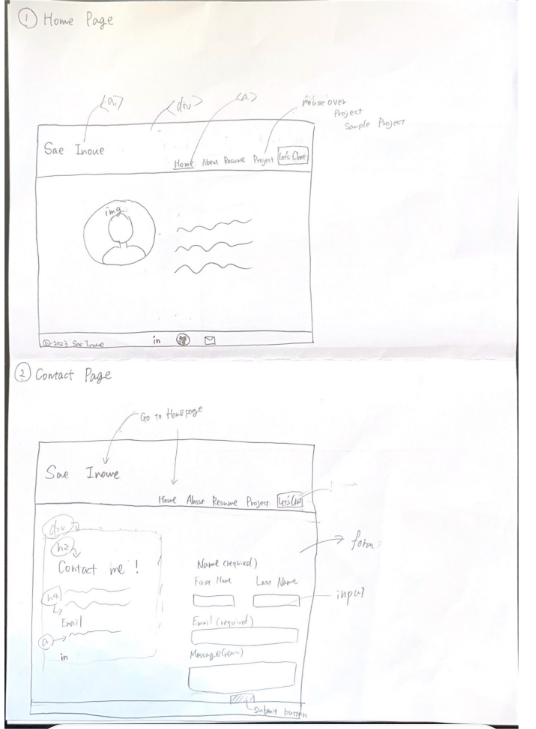 ① Home Page
<a>
<div>
<a>
mouse over
Project
Sample Project
Sae Inoue
Home About Resume Project Let's Chat
img
©2023 Sae Inoue in
② Contact Page
Go to Homepage
Sae Inoue
Home About Resume Project Let's Chat
div
h2
Contact me!
h4
Email
a
in
form
Name (required)
First Name Last Name
input
Email (required)
Message
Submit button